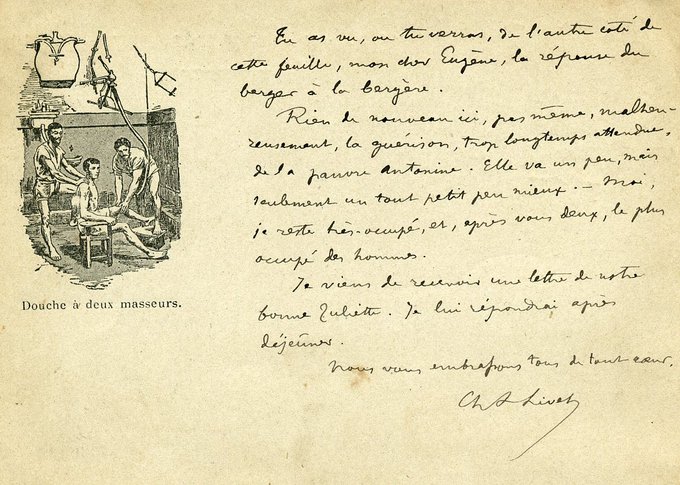 Tu as vu, ou tu verras, de l'autre coté de
cette feuille, mon cher Eugène, la réponse du
berger à la bergère.
Rien de nouveau ici, pas même, malheu-
reusement, la guérison, trop longtemps attendue,
de la pauvre Antonine. Elle va un peu, mais
seulement un tout petit peu mieux. — Moi,
je reste très-occupé, et, après vous deux, le plus
occupé des hommes.
Je viens de recevoir une lettre de notre
bonne Juliette. Je lui répondrai après
déjeûner.
Nous vous embrassons tous de tout cœur.
Ch L Livet
Douche à deux masseurs.